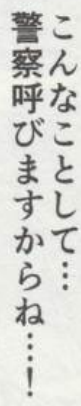 こんなことして…
警察呼びますからね…！